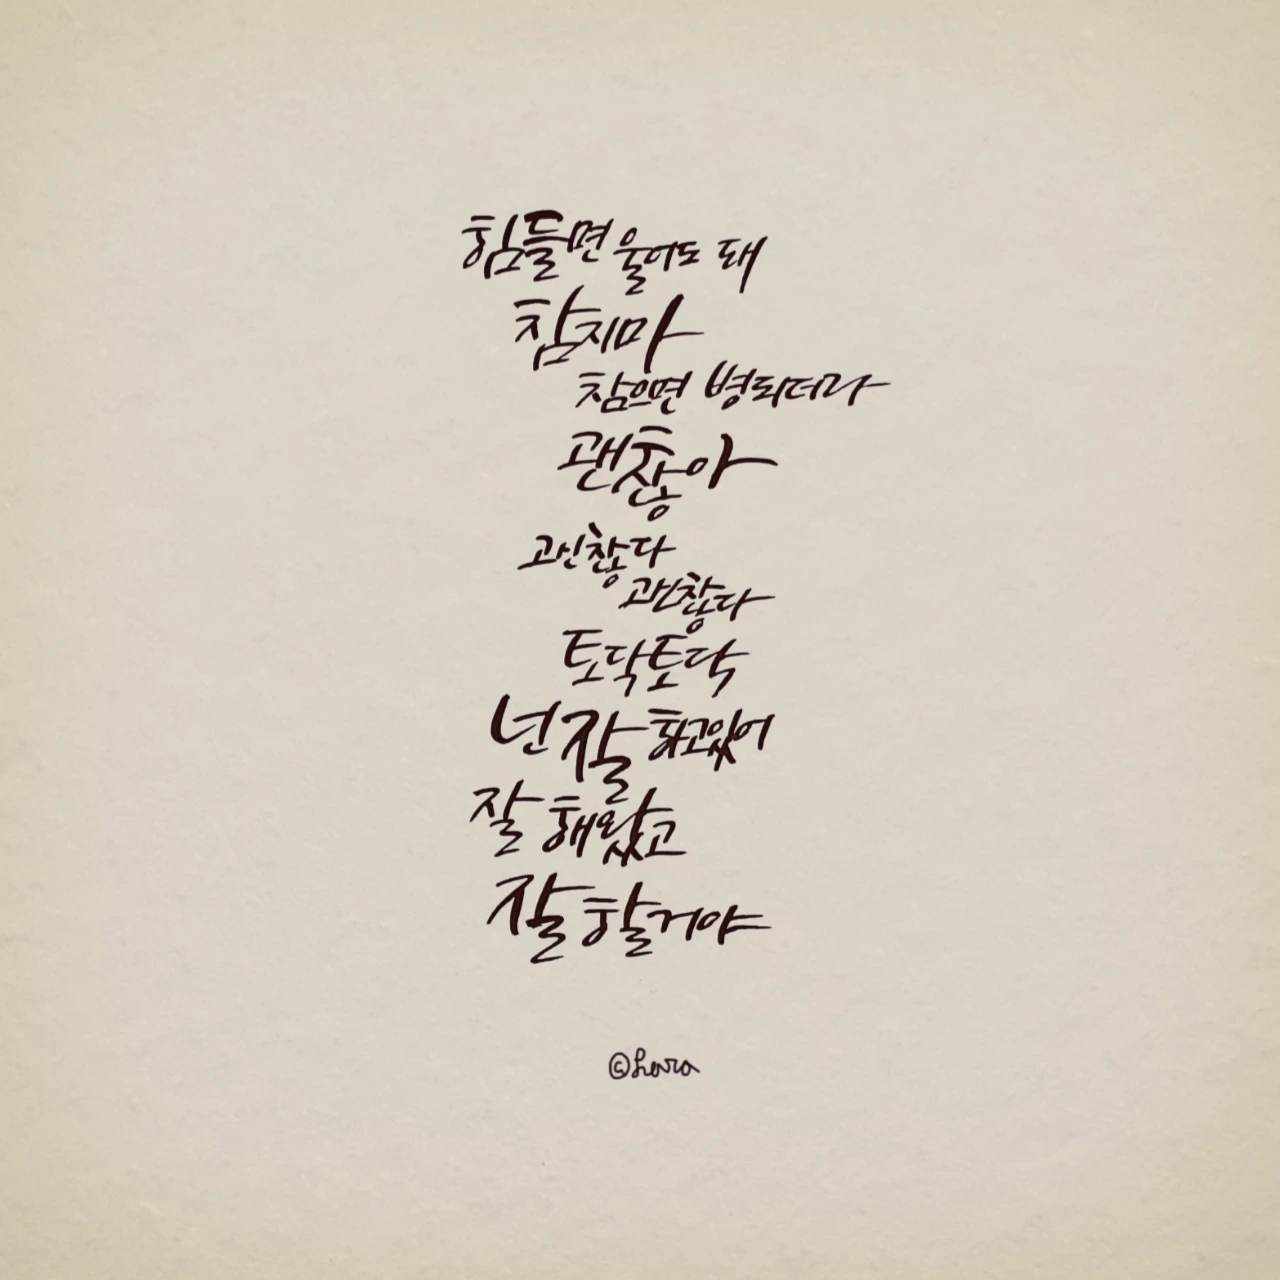 힘들면 울어도 돼
참지마
참으면 병되더라
괜찮아
괜찮다
괜찮다
토닥토닥
넌 잘 하고있어
잘 해왔고
잘 할거야
©hara